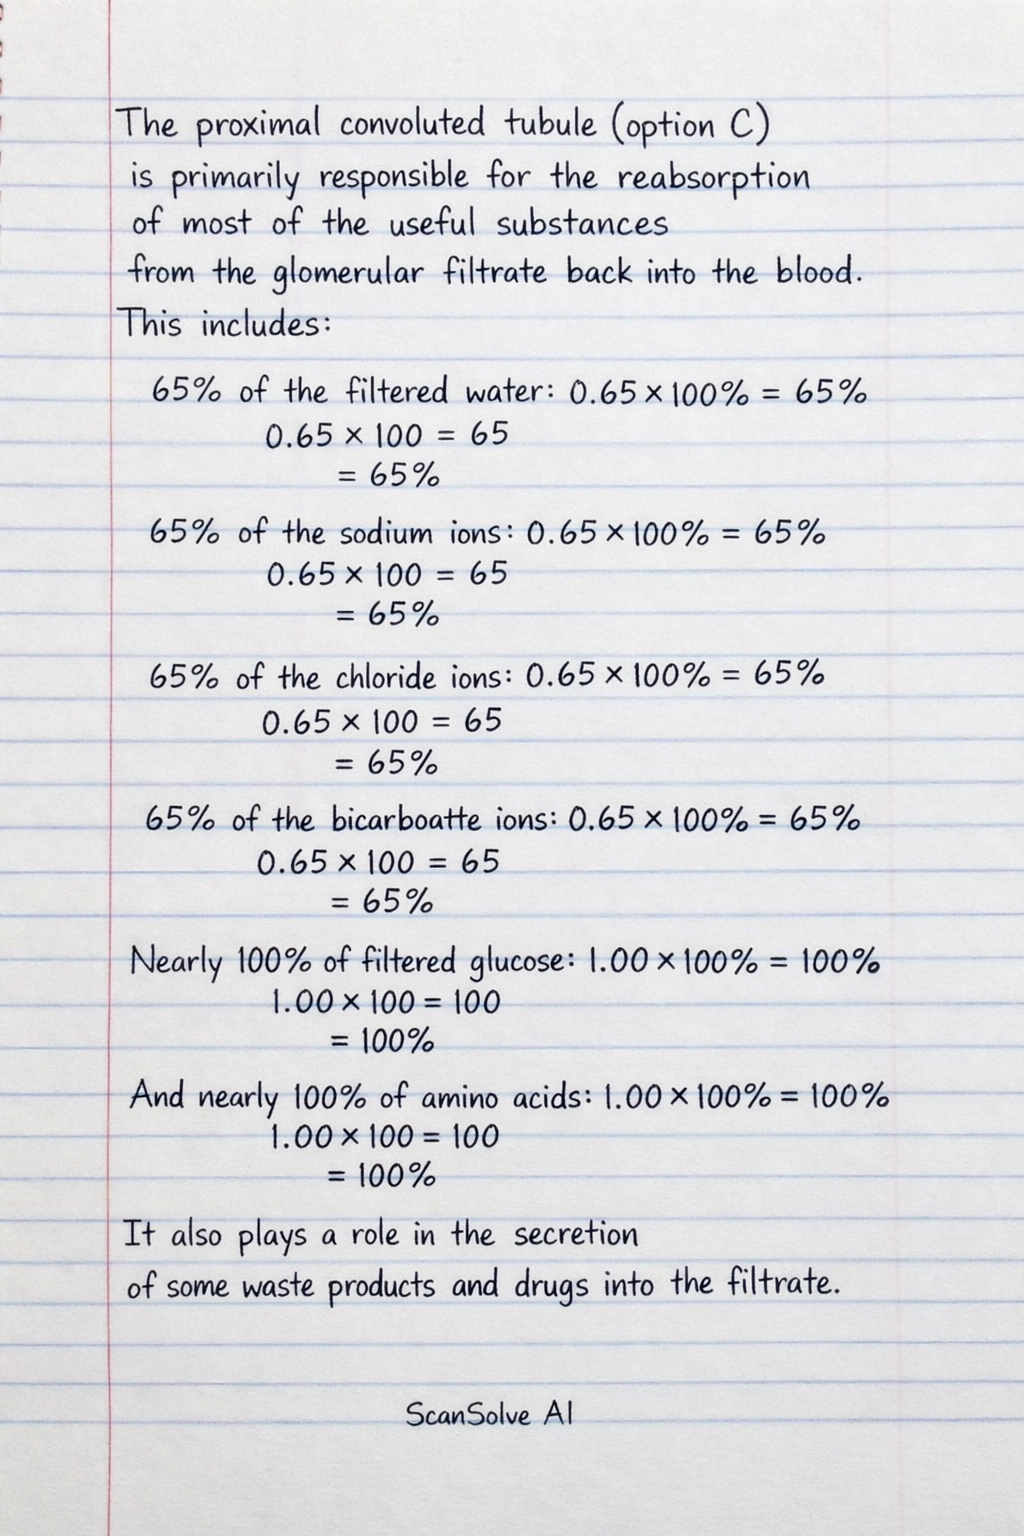 The proximal convoluted tubule (option C)
is primarily responsible for the reabsorption
of most of the useful substances
from the glomerular filtrate back into the blood.
This includes:
65% of the filtered water: 0.65 × 100% = 65%
0.65 × 100 = 65
= 65%
65% of the sodium ions: 0.65 × 100% = 65%
0.65 × 100 = 65
= 65%
65% of the chloride ions: 0.65 × 100% = 65%
0.65 × 100 = 65
= 65%
65% of the bicarboatte ions: 0.65 × 100% = 65%
0.65 × 100 = 65
= 65%
Nearly 100% of filtered glucose: 1.00 × 100% = 100%
1.00 × 100 = 100
= 100%
And nearly 100% of amino acids: 1.00 × 100% = 100%
1.00 × 100 = 100
= 100%
It also plays a role in the secretion
of some waste products and drugs into the filtrate.
ScanSolve AI